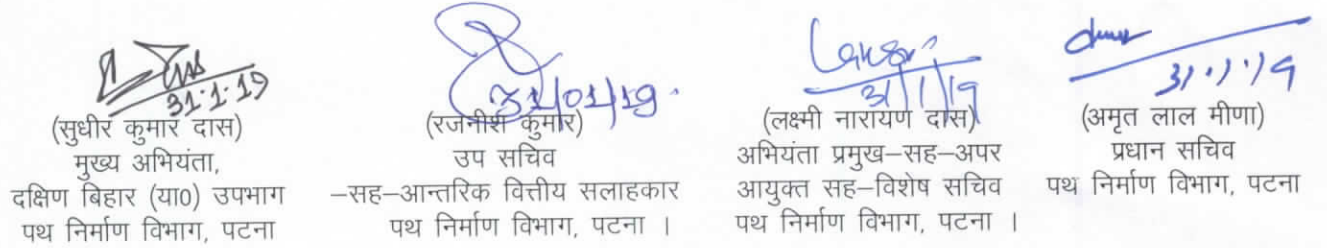 31.1.19
(सुधीर कुमार दास)
मुख्य अभियंता,
दक्षिण बिहार (या0) उपभाग
पथ निर्माण विभाग, पटना
31/01/19.
(रजनीश कुमार)
उप सचिव
–सह–आन्तरिक वित्तीय सलाहकार
पथ निर्माण विभाग, पटना ।
31/1/19
(लक्ष्मी नारायण दास)
अभियंता प्रमुख–सह–अपर
आयुक्त सह–विशेष सचिव
पथ निर्माण विभाग, पटना ।
31.1.19
(अमृत लाल मीणा)
प्रधान सचिव
पथ निर्माण विभाग, पटना